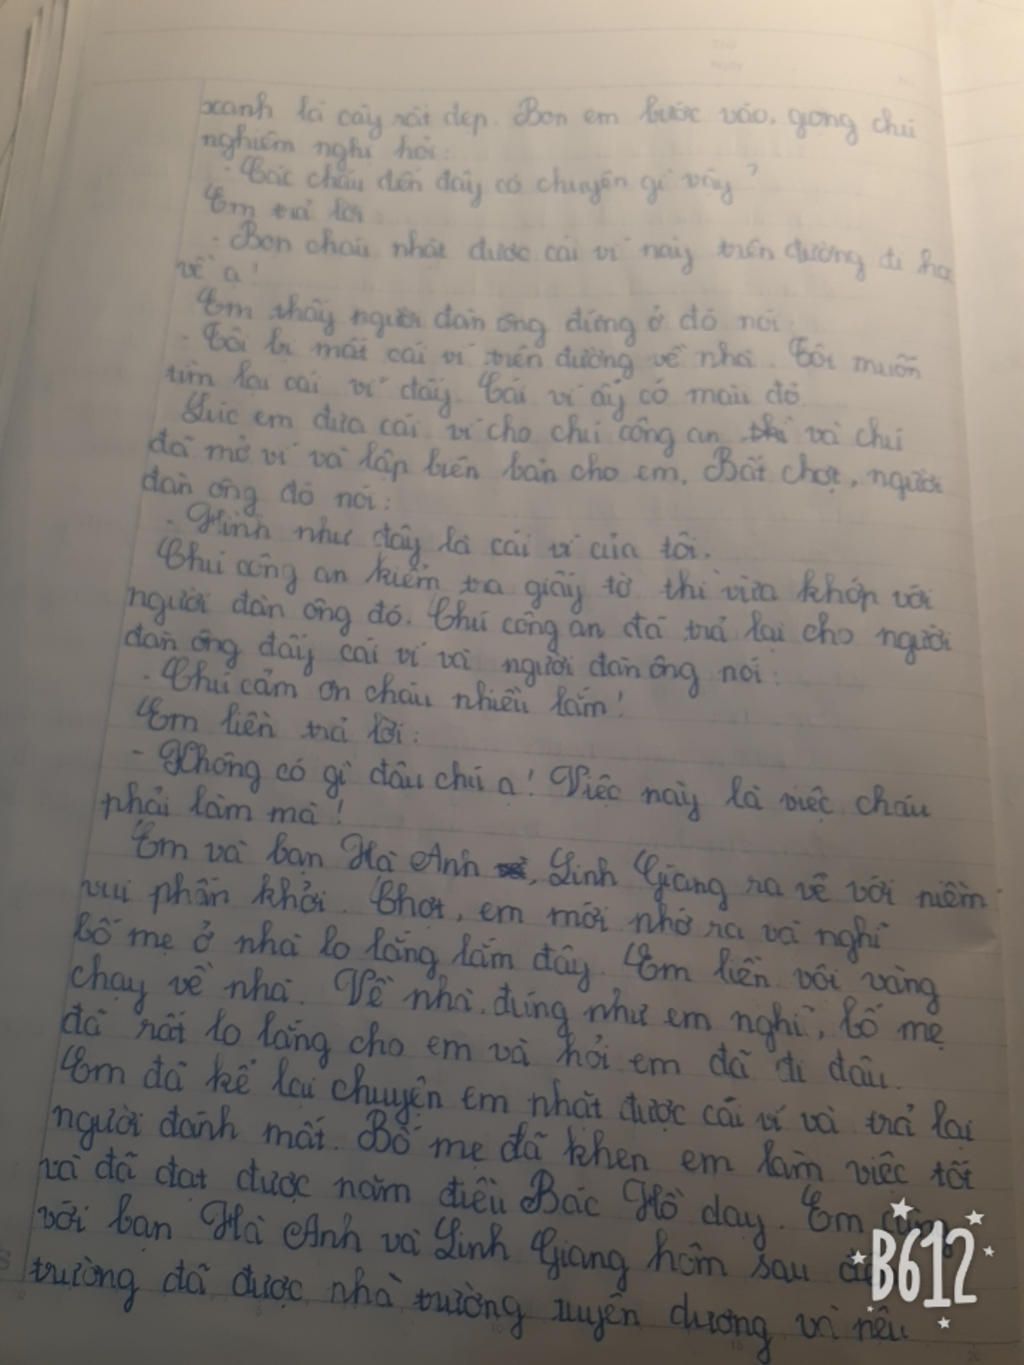 xanh lá cây rất đẹp. Bọn em bước vào, giọng chú
nghiêm nghị hỏi:
- Các cháu đến đây có chuyện gì vậy?
Em trả lời
- Bọn cháu nhặt được cái ví này trên đường đi học
về ạ!
Em thấy người đàn ông đứng ở đó nói
- Tôi bị mất cái ví trên đường về nhà. Tôi muốn
tìm lại cái ví đấy. Cái ví ấy có màu đỏ
Lúc em đưa cái ví cho chú công an và chú
đã mở ví và lập biên bản cho em. Bất chợt, người
đàn ông đó nói:
- Hình như đây là cái ví của tôi.
Chú công an kiểm tra giấy tờ thì vừa khớp với
người đàn ông đó. Chú công an đã trả lại cho người
đàn ông đấy cái ví và người đàn ông nói:
- Chú cảm ơn cháu nhiều lắm!
Em liền trả lời:
- Không có gì đâu chú ạ! Việc này là việc cháu
phải làm mà!
Em và bạn Hà Anh, Linh Giang ra về với niềm
vui phấn khởi. Chợt, em mới nhớ ra và nghĩ
bố mẹ ở nhà lo lắng lắm đây. Em liền vội vàng
chạy về nhà. Về nhà, đúng như em nghĩ, bố mẹ
đã rất lo lắng cho em và hỏi em đã đi đâu.
Em đã kể lại chuyện em nhặt được cái ví và trả lại
người đánh mất. Bố mẹ đã khen em làm việc tốt
và đã đạt được năm điều Bác Hồ dạy. Em
với bạn Hà Anh và Linh Giang hôm sau
trường đã được nhà trường tuyên dương và nêu
B612